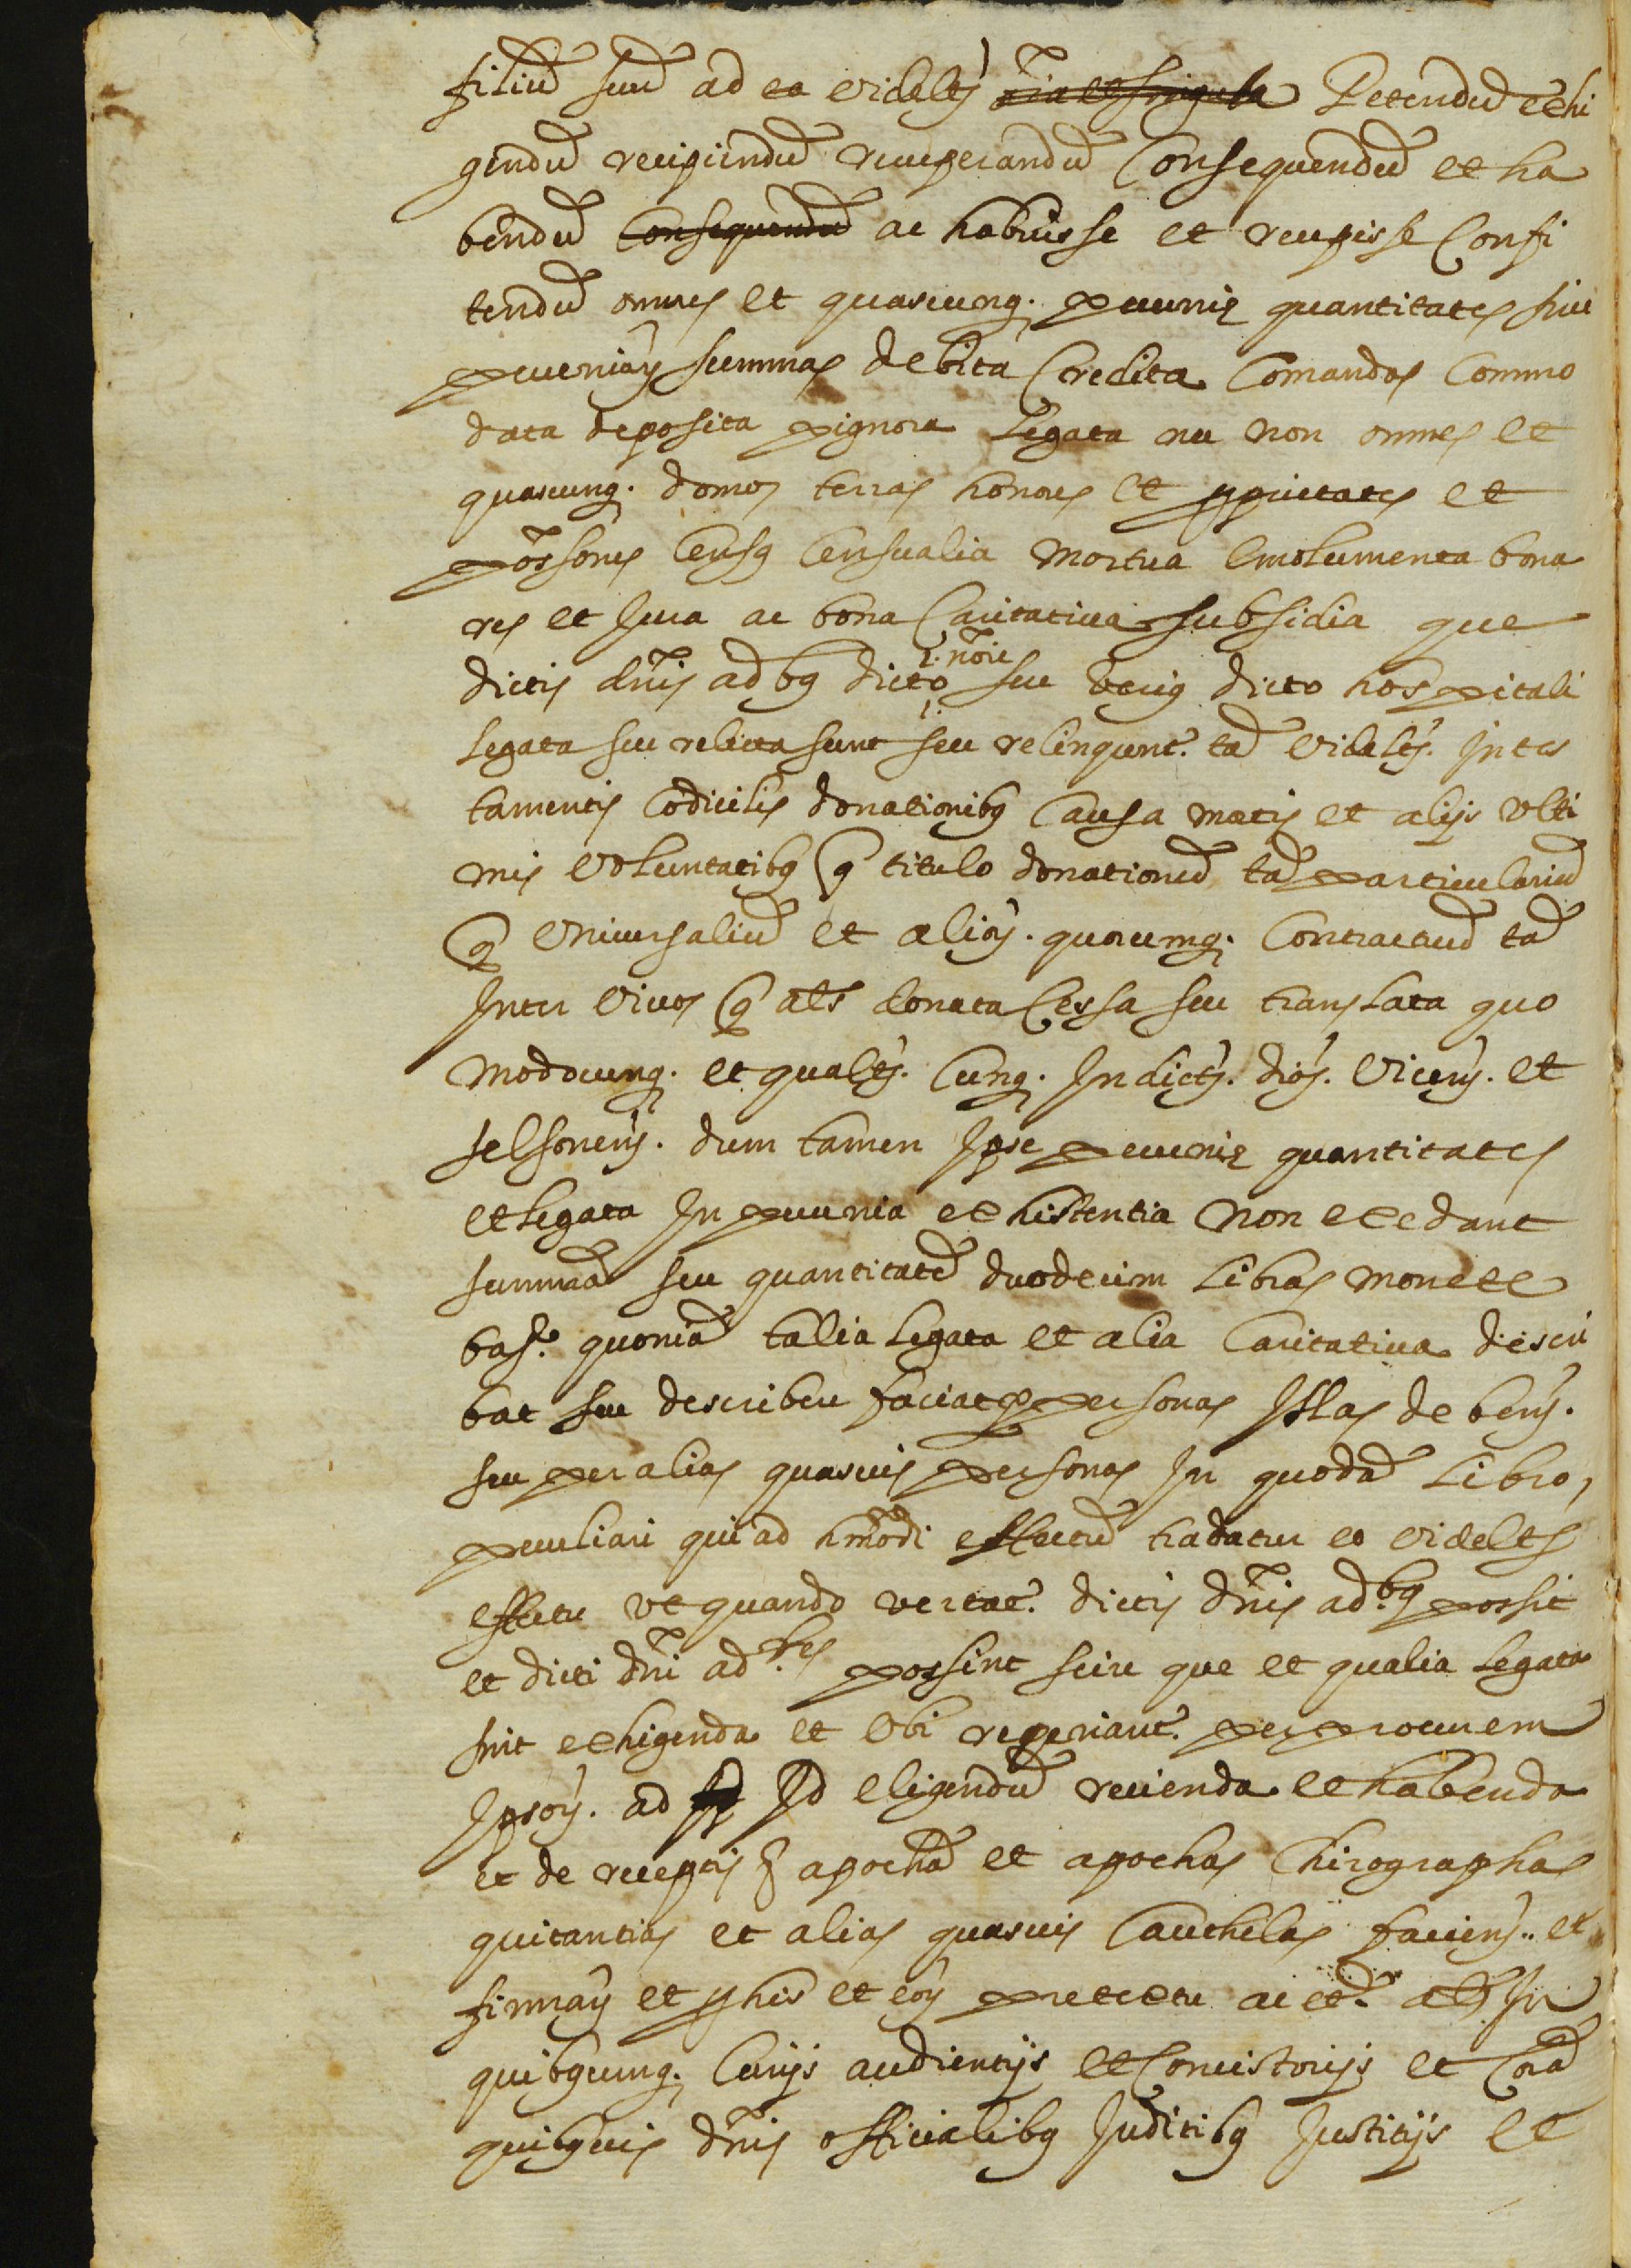 filiũ suũ ad ea videlꝫ õia et singula Petendũ exhi
gendũ recipiendũ recuperandũ Consequendũ et ha
bendũ Consequendũ ac habuisse et recepisse Confi
tendũ omnes et quascunqꝫ. pecunie quantitates sive
pecuniaꝝ summas debita Credita Comandas Commo
data deposita pignora Legata nec non omnes et
quascunqꝫ. domos terras honores et ꝓprietates et
põssones Censꝯ Censualia Mortua Emolumenta bona
res et Jura ac bona Caritativa subsidia que
dictis dñis adbꝯ dicto r. noie seu verius dicto hospitali
Legata seu relicta sunt seu relinqunt.̃ tã videlꝫ. Jn tes
tamentis Codicilis donationibꝯ Causa mortis et alijs Ulti
mis Voluntatibꝯ q̃ titulo donationũ tã particulariũ
q̃ Universaliũ et alioꝝ. quorumqꝫ. Contractuũ tã
Jnter vivos q̃ als donata Cessa seu translata quo
Modocunqꝫ. et qualꝫ. Cunqꝫ. Jn dictꝭ. dioꝭ. Vicenꝭ. et
selsonenꝭ. dum tamen Jpse pecunie quantitates
et Legata Jn pecunia exhistentia Non excedant
summã seu quantitatẽ duodecim Libras Monete
baꝝ.ᵉ quoniã talia Legata et alia Caritativa descri
bat seu describere faciat ꝑ personas Jllas de benꝭ.
seu per alias quasvis personas Jn quodã Libro,
peculiari qui ad hmõdi effectũ tradatur eo videlꝫ
effectu ut quando vertat.̃ dictis dñis ad.bꝯ possit
et dicti dñi ad.res possint scire que et qualia Legata
sint exhigenda et Ubi reperiant.̃ per procurem
Jpsoꝝ. ad Jd Eligendũ recienda et habenda
et de receptis apochã et apochas Chirographas
quitantias et alias quasvis Cauthelas faciend.. et
firmanꝭ et ꝓ his et eoꝝ pretextu ac et.̃ als Jn
quibꝯcunqꝫ. Curijs audientijs et Concistorijs et Corã
quibꝯvis dñis officialibꝯ Juditibꝯ Justitijs et